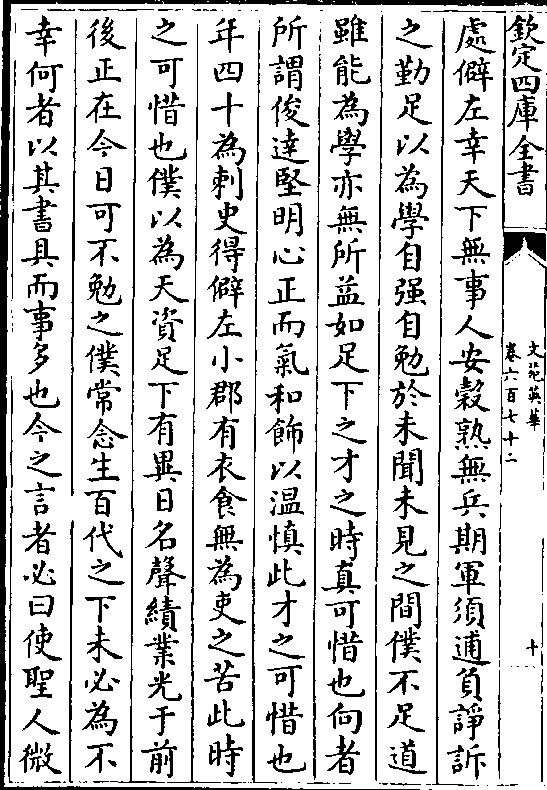 欽定四庫全書
文苑英華
卷六百七十二
十
處僻左幸天下無事人安穀熟無兵期軍須逋負諍訴
之勤足以為學自强自勉於未聞未見之間僕不足道
雖能為學亦無所益如足下之才之時真可惜也向者
所謂俊達堅明心正而氣和飾以温慎此才之可惜也
年四十為刺史得僻左小郡有衣食無為吏之苦此時
之可惜也僕以為天資足下有異日名聲績業光于前
後正在今日可不勉之僕常念生百代之下未必為不
幸何者以其書具而事多也今之言者必曰使聖人微